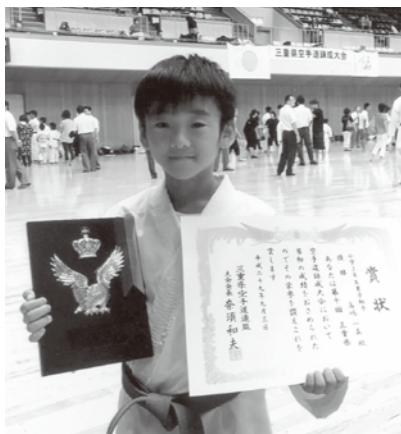 三重県空手道錬成大会
賞状
優勝
殿
あなたは第十回三重県
空手道錬成大会において
の成績をおさめられた
のでその栄誉を讃えこれを
賞します
平成二十九年九月三日
三重県空手道連盟
大会会長 奈須和夫